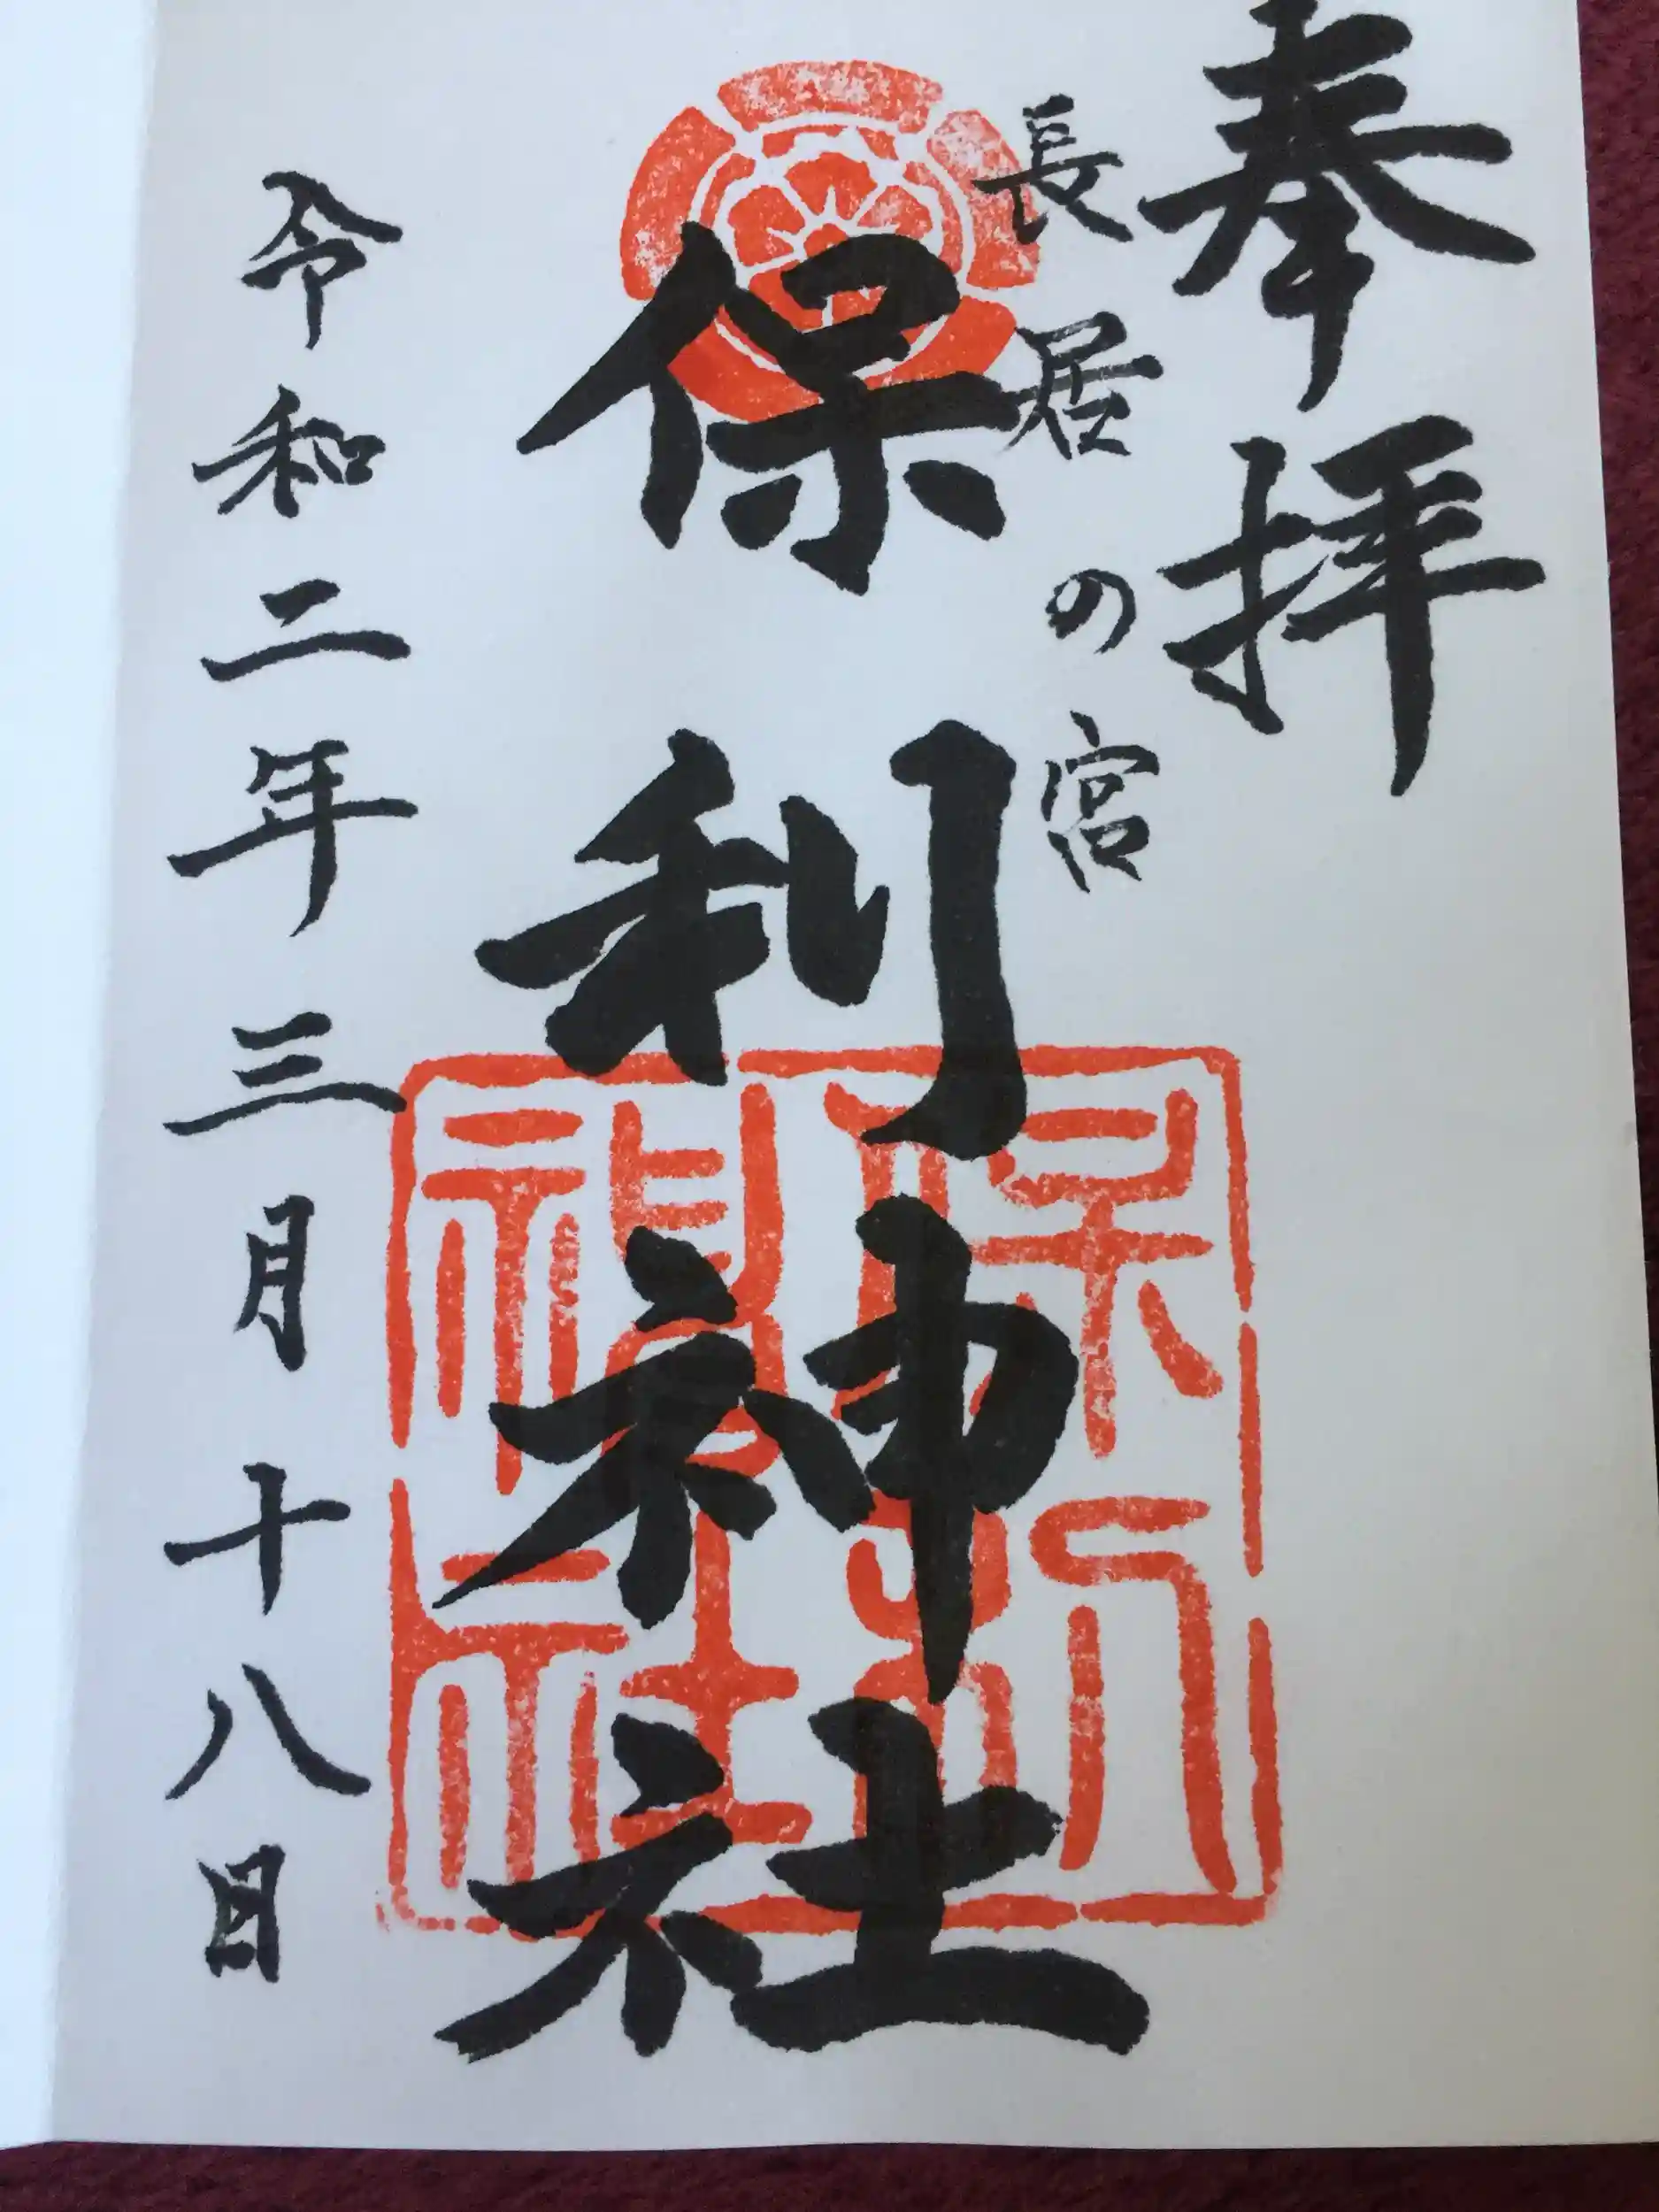 奉拝
長居の宮
保利神社
保利神社
令和二年三月十八日